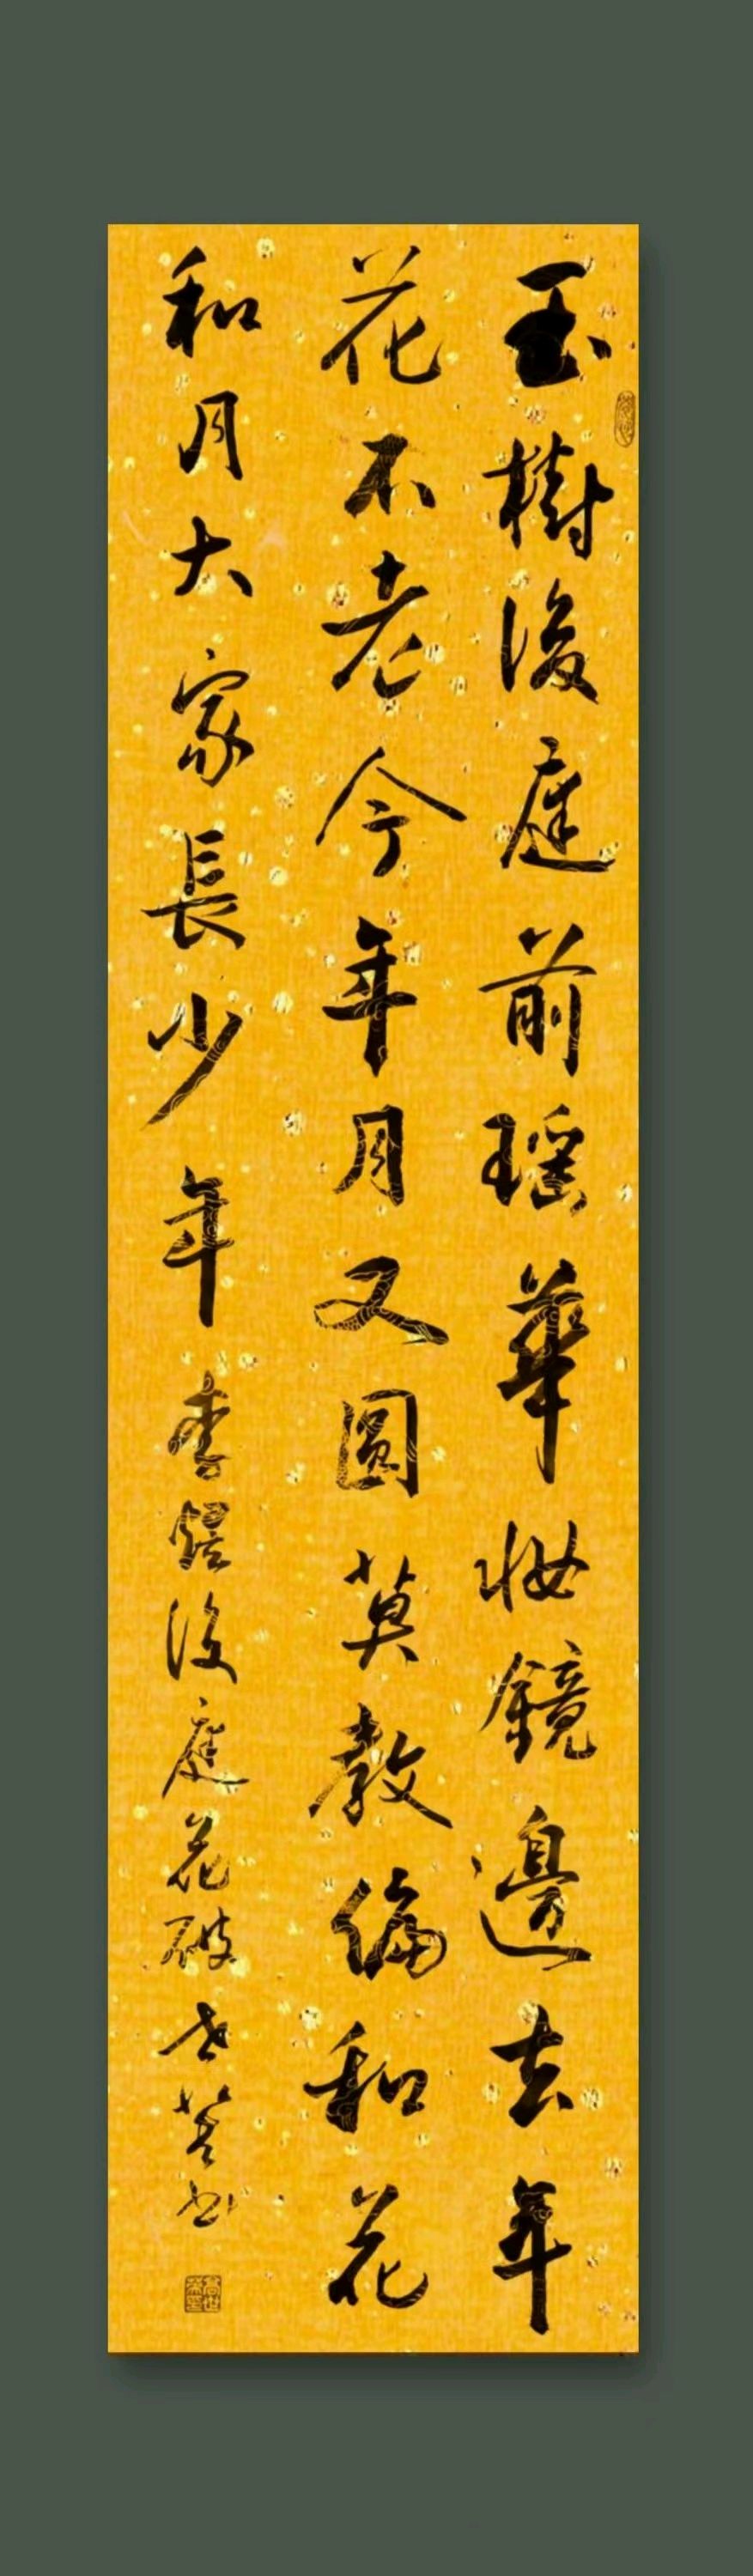 玉樹後庭前瑤華妝鏡邊去年
花不老今年月又圓莫教偏和花
和月大家長少年 李煜後庭花破